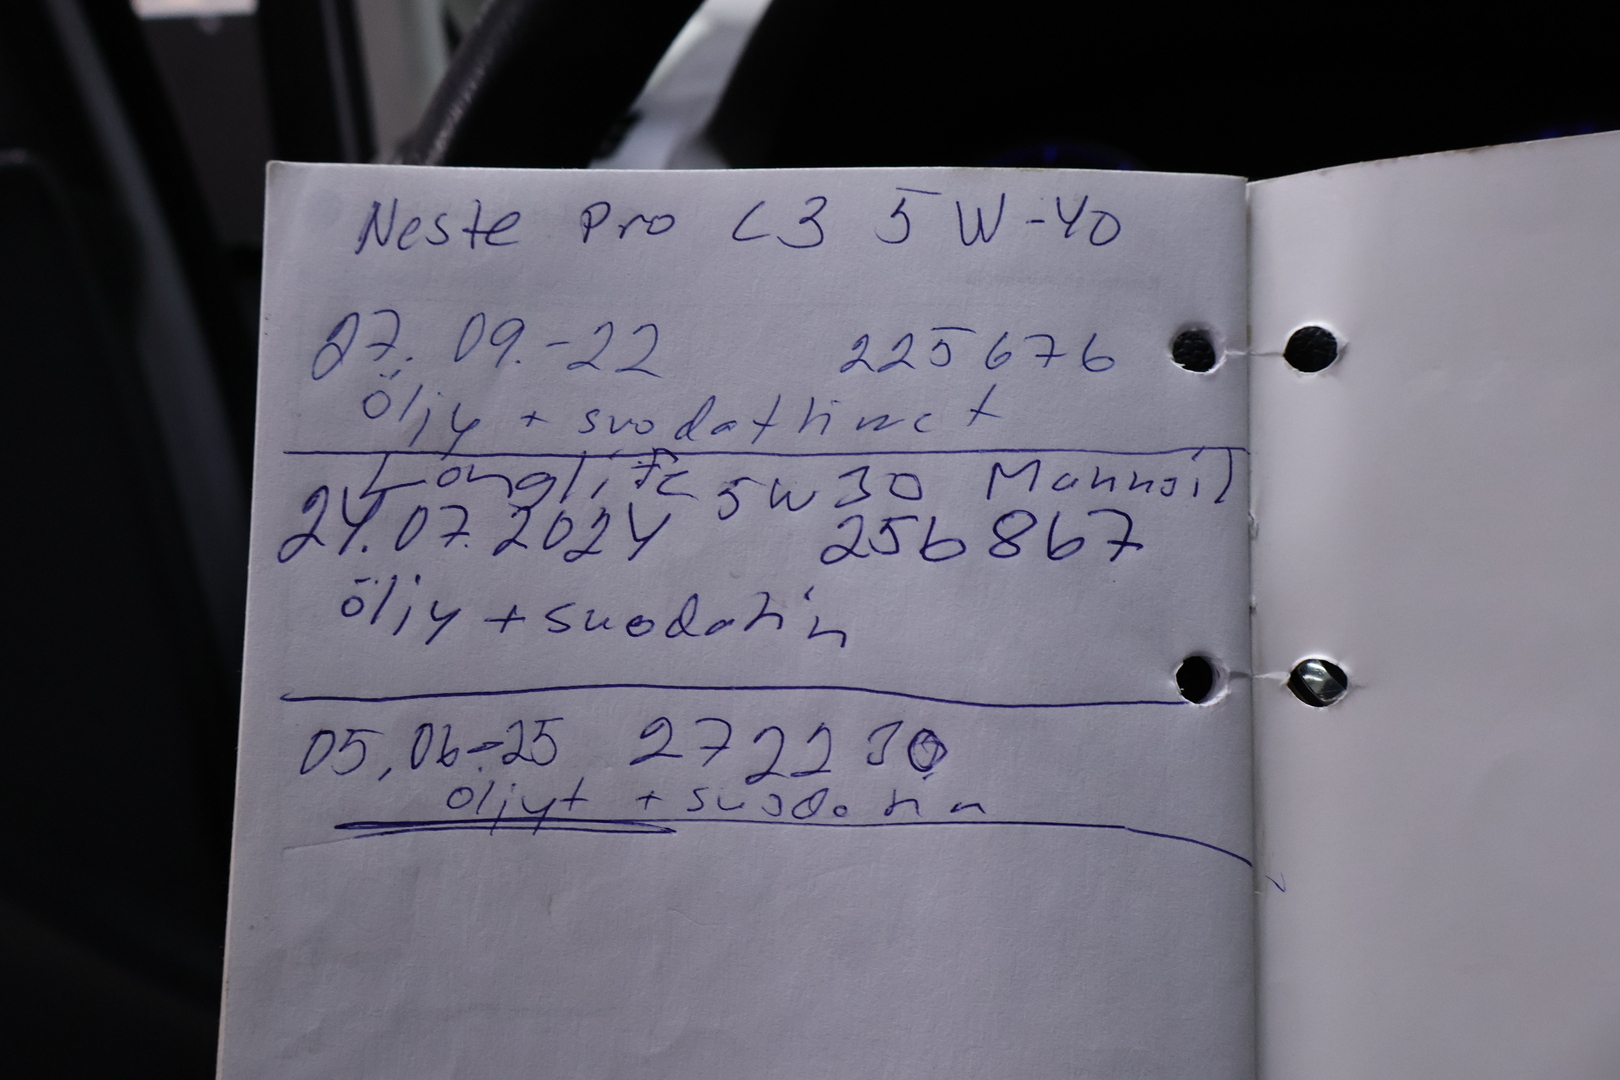 Neste Pro C3 5W-40
27.09.-22 225676
Öljy + suodattimet
Longlife 5W30 Mannoil
24.07.2024 256867
öljy + suodatin
05.06-25 272230
öljyt + suodatin